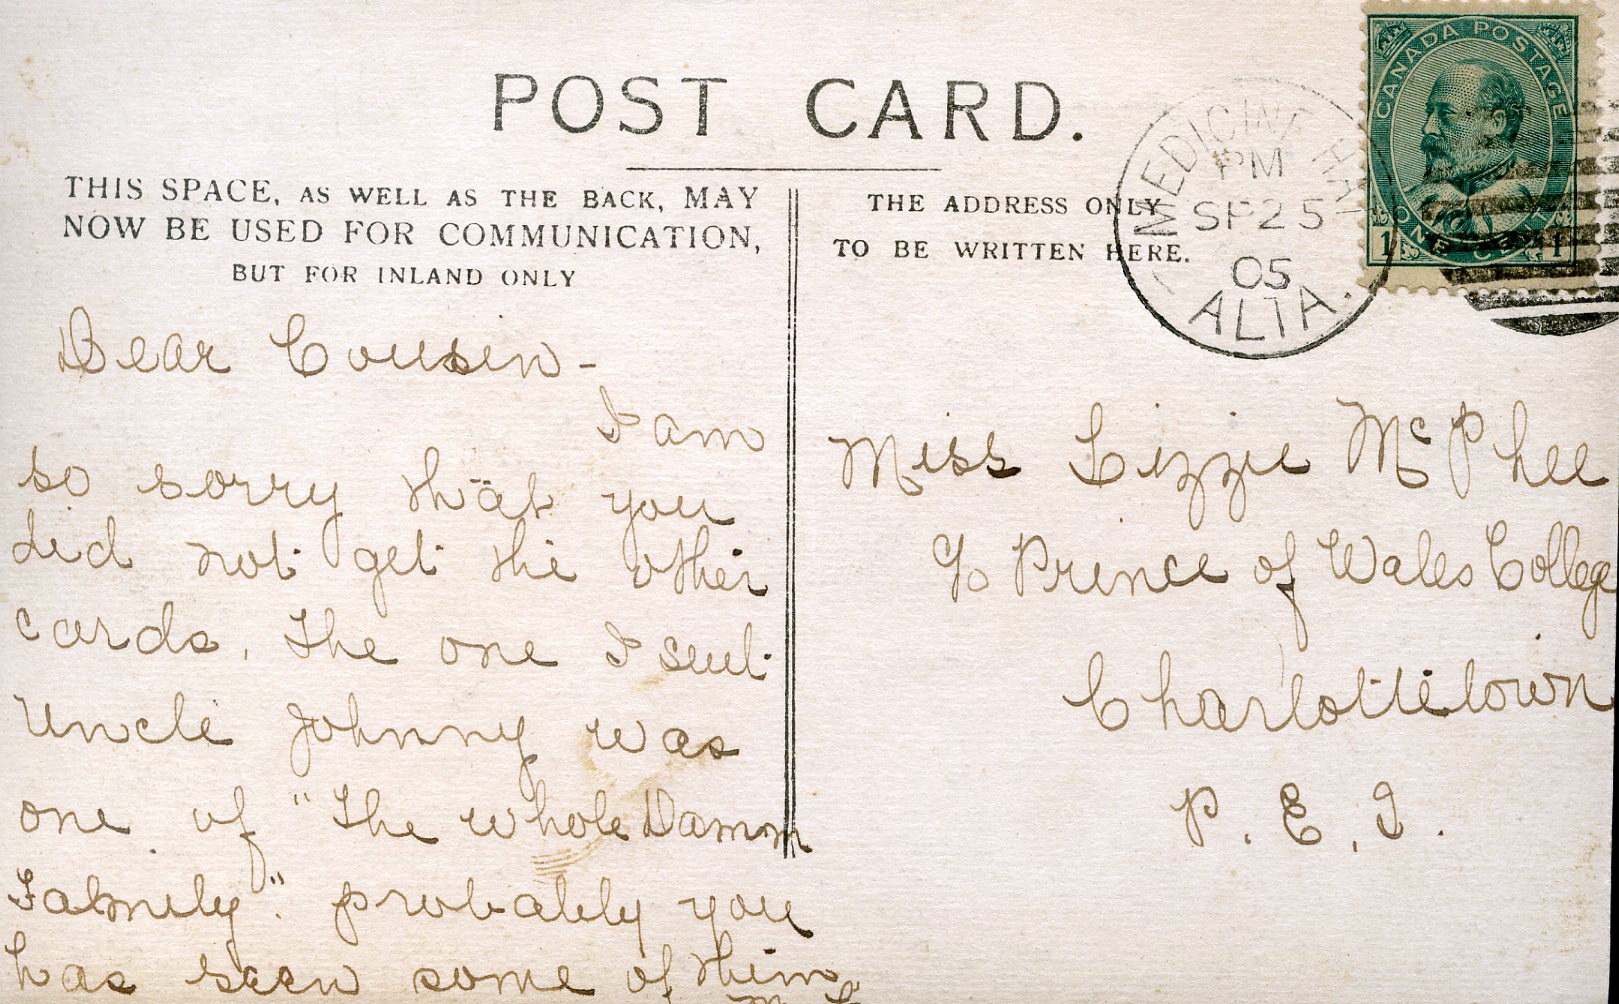 POST CARD.
THIS SPACE, AS WELL AS THE BACK, MAY
NOW BE USED FOR COMMUNICATION,
BUT FOR INLAND ONLY
THE ADDRESS ONLY
TO BE WRITTEN HERE.
CANADA POSTAGE
1 ONE CENT 1
MEDICINE HAT
PM
SP 25
05
ALTA.
Dear Cousin -
I am
so sorry that you
did not get the other
cards. The one I sent
Uncle Johnny was
one of "The whole Damm
Family". probably you
has seen some of them
Miss Lizzie McPhee
c/o Prince of Wales College
Charlottetown
P. E. I.